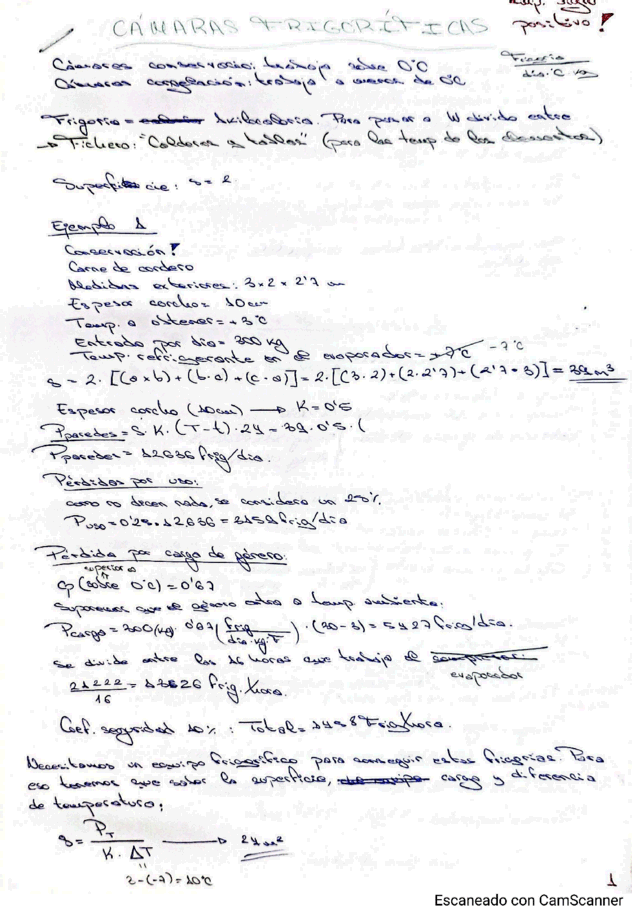 CÁMARAS FRIGORÍFICAS
positivo!
Cámaras conservación: trabaja sobre 0ºC
Cámaras congelación: trabaja a menos de 0ºC
Frigoría
día·ºC·kg
Frigoria = 1 kilocaloria. Para pasar a W divido entre
→ Fichero: "Calderas y tablas" (para las temp de los
Superficie: s = 2
Ejemplo 1
Conservación!
Carne de cordero
Medidas exteriores: 3 x 2 x 2'7 m
Espesor corcho = 10 cm
Temp. a obtener = 3ºC
Entrada por día = 300 kg
Temp. refrigerante en el evaporador = -7ºC
s = 2·[(a x b) + (b·c) + (c·a)] = 2·[(3·2) + (2·2'7) + (2'7·3)] = 39 m³
Espesor corcho (10cm) → K = 0'5
Pparedes = S·K·(T-t)·24 = 39·0'5·(
Pparedes = 12636 frig/día.
Pérdidas por uso:
como no dicen nada, se considera un 25%
Puso = 0'25·12636 = 3159 frig/día
Pérdida por carga de género:
superior a
cp (sobre 0ºC) = 0'67
Suponemos que el género entra a temp ambiente:
Pcarga = 300(kg)·0'67(frig/día·kg·ºC)·(30-3) = 5427 frig/día.
Se divide entre las 16 horas que trabaja el
evaporador
21222/16 = 1326 frig/hora.
Coef. seguridad 10%: Total = 1458'7 frig/hora.
Necesitamos un equipo frigorífico para conseguir estas frigorías. Para
eso tenemos que saber la superficie, carga y diferencia
de temperatura:
s = PT / K·ΔT → 24 m²
3-(-7) = 10ºC
1
Escaneado con CamScanner